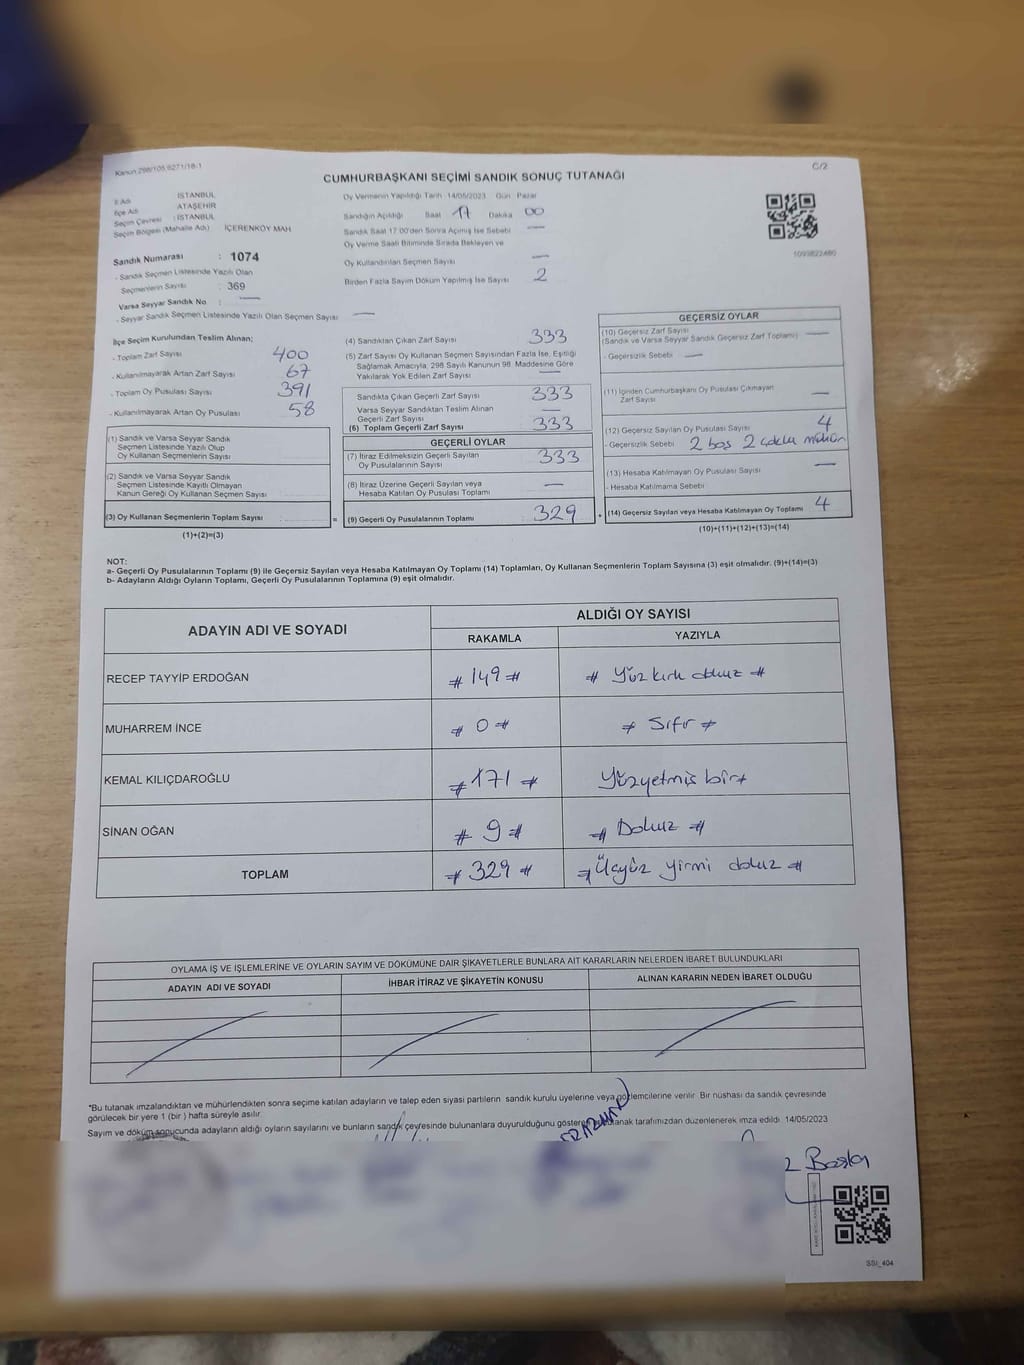 Kanun 298/105 6271/18-1
C/2
CUMHURBAŞKANI SEÇİMİ SANDIK SONUÇ TUTANAĞI
İl Adı : İSTANBUL
İlçe Adı : ATAŞEHİR
Seçim Çevresi : İSTANBUL
Seçim Bölgesi (Mahalle Adı) : İÇERENKÖY MAH.
Sandık Numarası : 1074
- Sandık Seçmen Listesinde Yazılı Olan
Seçmenlerin Sayısı : 369
Varsa Seyyar Sandık No : —
- Seyyar Sandık Seçmen Listesinde Yazılı Olan Seçmen Sayısı —
Oy Vermenin Yapıldığı Tarih :14/05/2023 Gün : Pazar
Sandığın Açıldığı Saat 17 Dakika 00
Sandık Saat 17.00'den Sonra Açılmış İse Sebebi —
Oy Verme Saati Bitiminde Sırada Bekleyen ve
Oy Kullandırılan Seçmen Sayısı —
Birden Fazla Sayım Döküm Yapılmış İse Sayısı 2
1093822480
İlçe Seçim Kurulundan Teslim Alınan;
- Toplam Zarf Sayısı 400
- Kullanılmayarak Artan Zarf Sayısı 67
- Toplam Oy Pusulası Sayısı 391
- Kullanılmayarak Artan Oy Pusulası 58
(1) Sandık ve Varsa Seyyar Sandık
Seçmen Listesinde Yazılı Olup
Oy Kullanan Seçmenlerin Sayısı
(2) Sandık ve Varsa Seyyar Sandık
Seçmen Listesinde Kayıtlı Olmayan
Kanun Gereği Oy Kullanan Seçmen Sayısı
(3) Oy Kullanan Seçmenlerin Toplam Sayısı =
(1)+(2)=(3)
(4) Sandıktan Çıkan Zarf Sayısı 333
(5) Zarf Sayısı Oy Kullanan Seçmen Sayısından Fazla İse, Eşitliği
Sağlamak Amacıyla, 298 Sayılı Kanunun 98. Maddesine Göre
Yakılarak Yok Edilen Zarf Sayısı —
Sandıkta Çıkan Geçerli Zarf Sayısı 333
Varsa Seyyar Sandıktan Teslim Alınan
Geçerli Zarf Sayısı —
(6) Toplam Geçerli Zarf Sayısı 333
GEÇERLİ OYLAR
(7) İtiraz Edilmeksizin Geçerli Sayılan
Oy Pusulalarının Sayısı 333
(8) İtiraz Üzerine Geçerli Sayılan veya
Hesaba Katılan Oy Pusulası Toplamı —
(9) Geçerli Oy Pusulalarının Toplamı 329 +
GEÇERSİZ OYLAR
(10) Geçersiz Zarf Sayısı —
(Sandık ve Varsa Seyyar Sandık Geçersiz Zarf Toplamı)
- Geçersizlik Sebebi —
(11) İçinden Cumhurbaşkanı Oy Pusulası Çıkmayan
Zarf Sayısı —
(12) Geçersiz Sayılan Oy Pusulası Sayısı 4
- Geçersizlik Sebebi 2 boş 2 çoklu mühür
(13) Hesaba Katılmayan Oy Pusulası Sayısı —
- Hesaba Katılmama Sebebi
(14) Geçersiz Sayılan veya Hesaba Katılmayan Oy Toplamı 4
(10)+(11)+(12)+(13)=(14)
NOT:
a- Geçerli Oy Pusulalarının Toplamı (9) ile Geçersiz Sayılan veya Hesaba Katılmayan Oy Toplamı (14) Toplamları, Oy Kullanan Seçmenlerin Toplam Sayısına (3) eşit olmalıdır. (9)+(14)=(3)
b- Adayların Aldığı Oyların Toplamı, Geçerli Oy Pusulalarının Toplamına (9) eşit olmalıdır.
ADAYIN ADI VE SOYADI
ALDIĞI OY SAYISI
RAKAMLA YAZIYLA
RECEP TAYYİP ERDOĞAN # 149 # # Yüz kırk dokuz #
MUHARREM İNCE # 0 # # Sıfır #
KEMAL KILIÇDAROĞLU # 171 # Yüzyetmiş bir #
SİNAN OĞAN # 9 # # Dokuz #
TOPLAM # 329 # # Üçyüz yirmi dokuz #
OYLAMA İŞ VE İŞLEMLERİNE VE OYLARIN SAYIM VE DÖKÜMÜNE DAİR ŞİKAYETLERLE BUNLARA AİT KARARLARIN NELERDEN İBARET BULUNDUKLARI
ADAYIN ADI VE SOYADI İHBAR İTİRAZ VE ŞİKAYETİN KONUSU ALINAN KARARIN NEDEN İBARET OLDUĞU
*Bu tutanak imzalandıktan ve mühürlendikten sonra seçime katılan adayların ve talep eden siyasi partilerin sandık kurulu üyelerine veya gözlemcilerine verilir. Bir nüshası da sandık çevresinde
görülecek bir yere 1 (bir) hafta süreyle asılır.
Sayım ve döküm sonucunda adayların aldığı oyların sayılarını ve bunların sandık çevresinde bulunanlara duyurulduğunu gösteren tutanak tarafımızdan düzenlenerek imza edildi. 14/05/2023
SSI_404